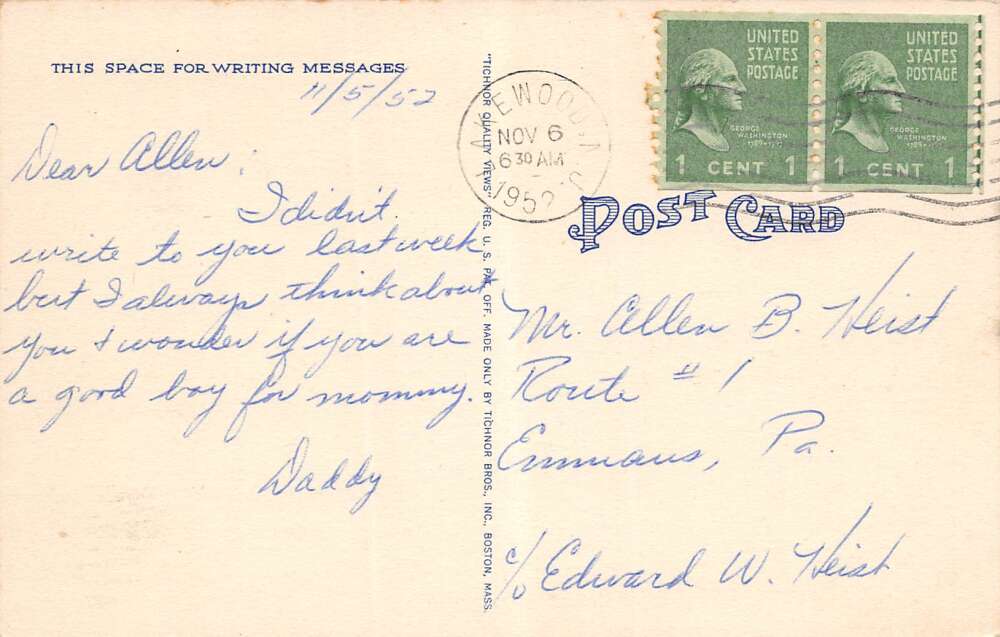 THIS SPACE FOR WRITING MESSAGES
11/5/52
Dear Allen:
I didn't
write to you last week
but I always think about
you + wonder if you are
a good boy for mommy.
Daddy
"TICHNOR QUALITY VIEWS" REG. U. S. PAT. OFF. MADE ONLY BY TICHNOR BROS., INC., BOSTON, MASS.
NOV 6
6 30 AM
1952
UNITED
STATES
POSTAGE
GEORGE
WASHINGTON
1789-1797
1 CENT 1
UNITED
STATES
POSTAGE
GEORGE
WASHINGTON
1789-1797
1 CENT 1
POST CARD
Mr. Allen B. Heist
Route #1
Emmaus, Pa.
c/o Edward W. Heist